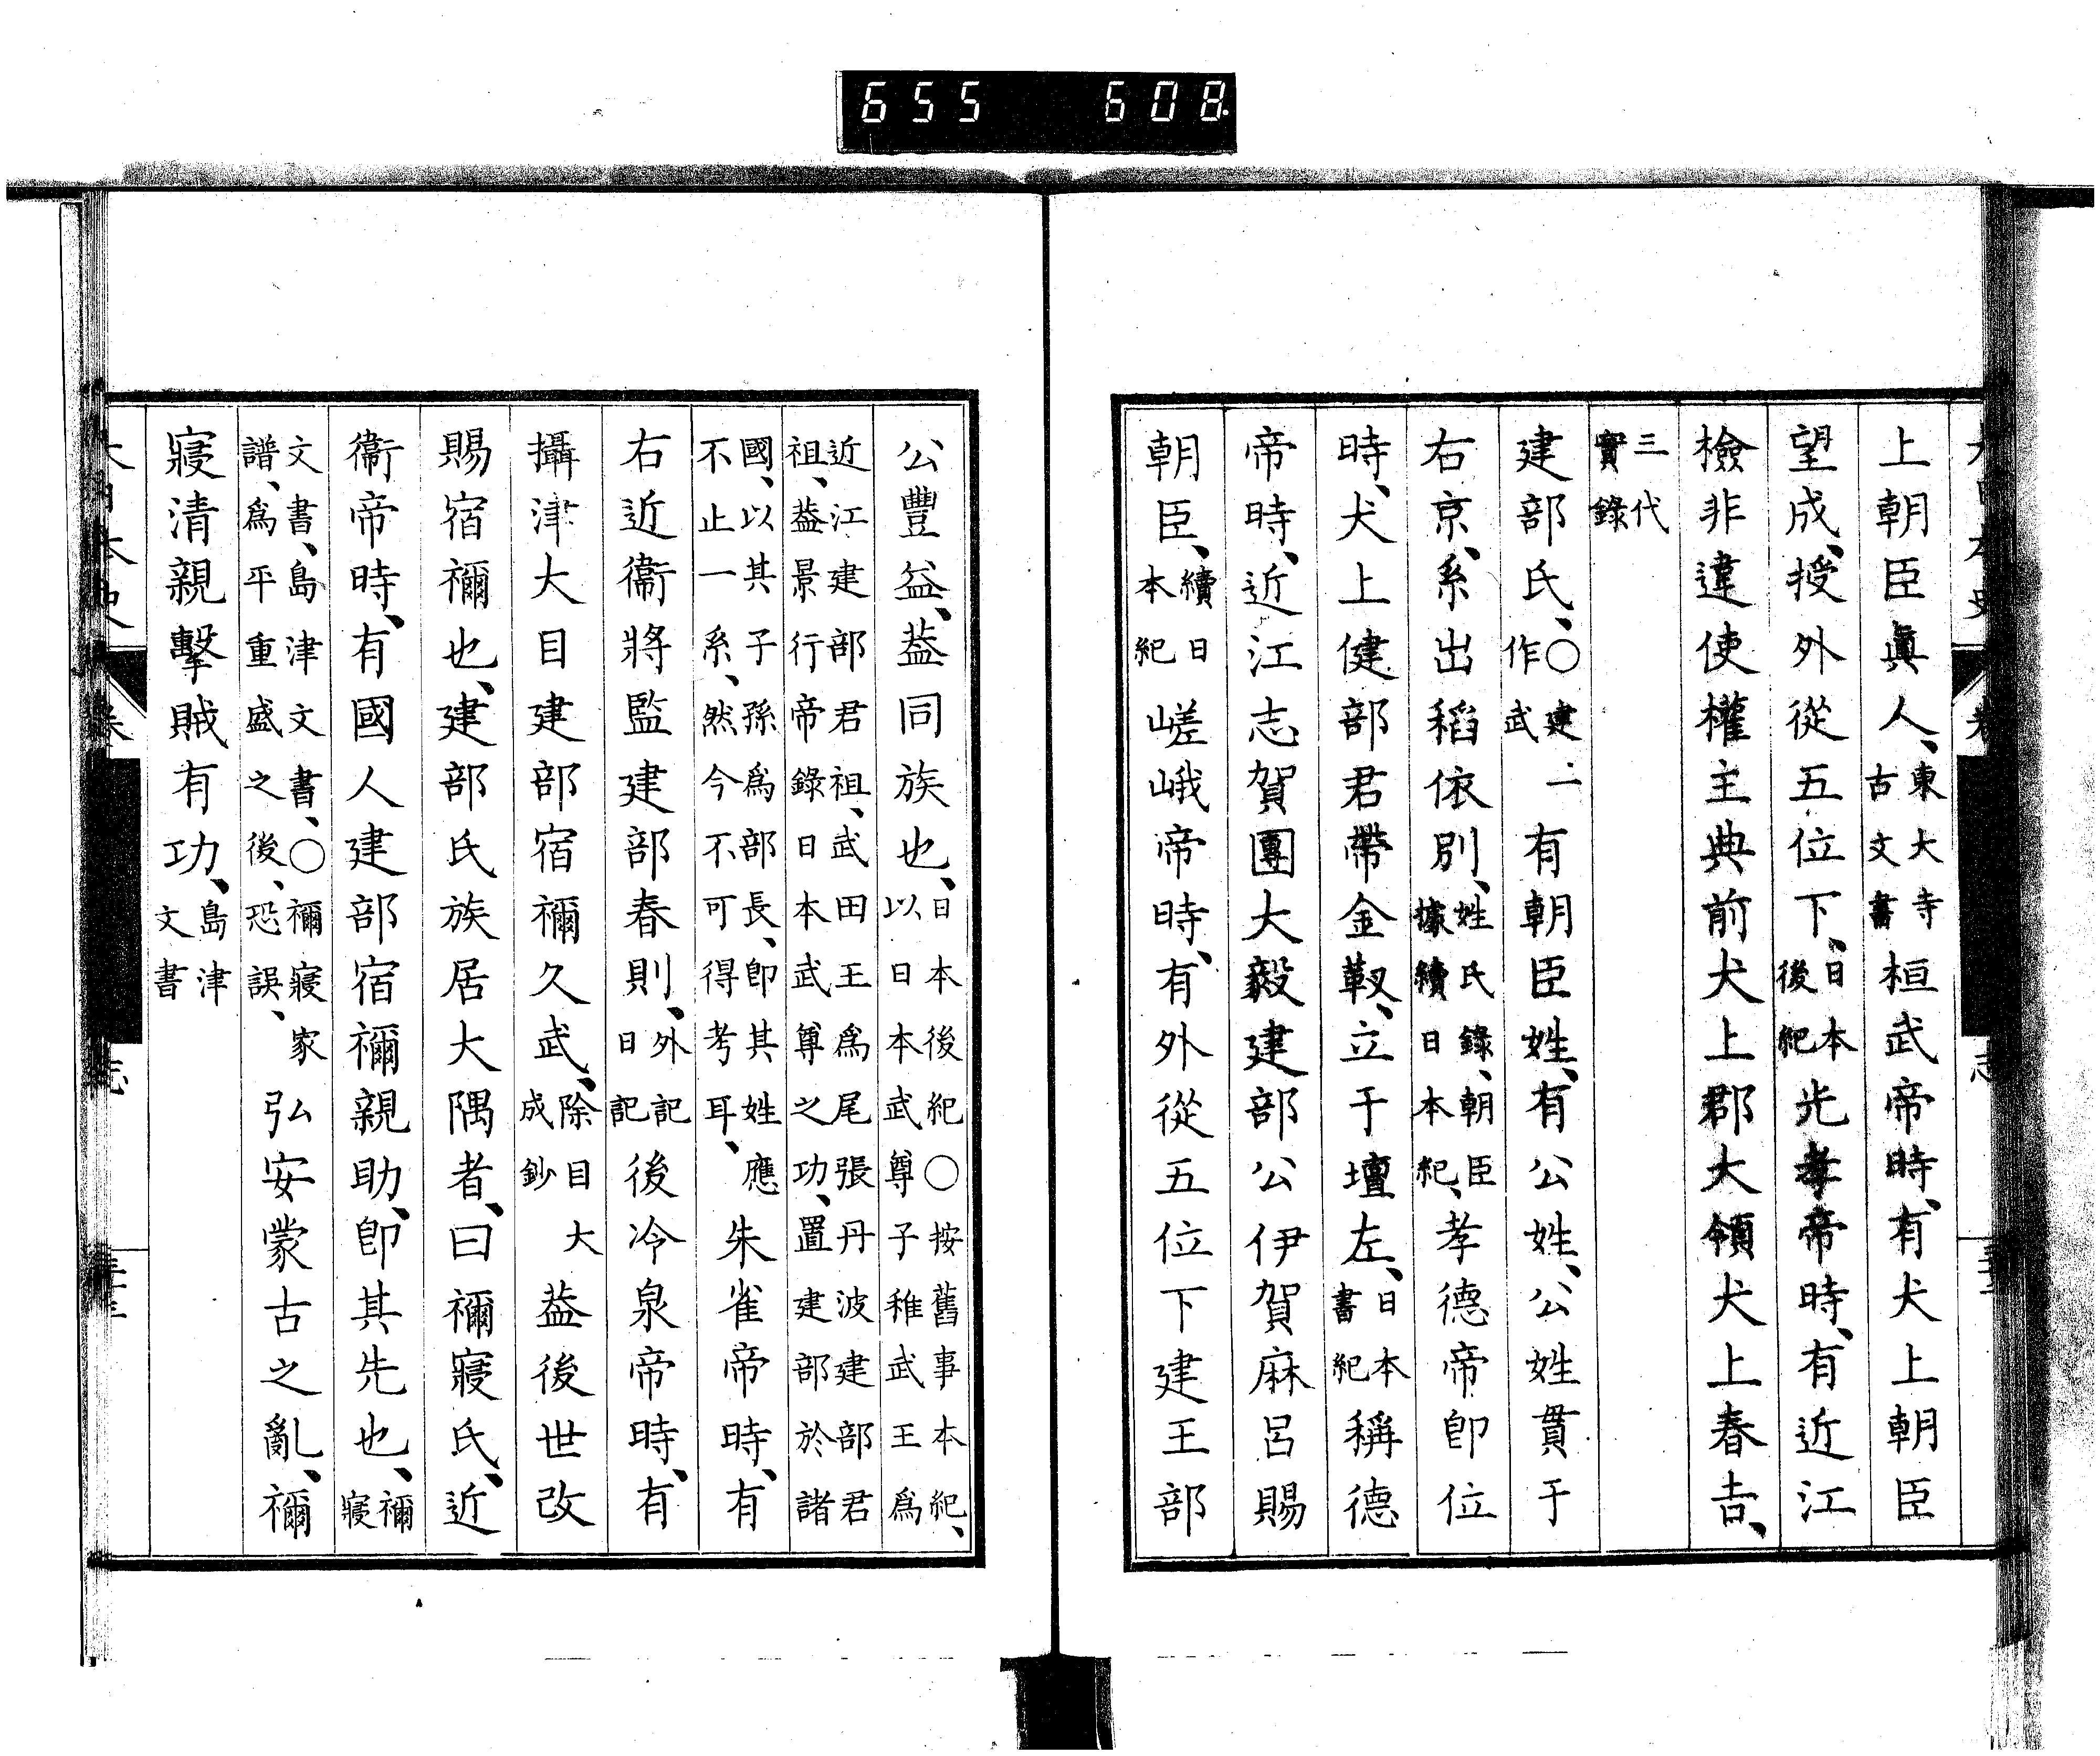 655 608
上朝臣眞人、東大寺古文書桓武帝時、有犬上朝臣
望成、授外從五位下、日本後紀光孝帝時、有近江
檢非違使權主典前犬上郡大領犬上春吉、
三代實錄
建部氏、○建一作武有朝臣姓、有公姓、公姓貫于
右京、系出稻依別、姓氏錄、朝臣據續日本紀、孝德帝卽位
時、犬上健部君帶金靫、立于壇左、日本書紀稱德
帝時、近江志賀團大毅建部公伊賀麻呂賜
朝臣、續日本紀嵯峨帝時、有外從五位下建王部
公豐益、葢同族也、日本後紀○按舊事本紀、以日本武尊子稚武王爲
近江建部君祖、武田王爲尾張丹波建部君祖、葢景行帝錄日本武尊之功、置建部於諸
國、以其子孫爲部長、卽其姓應不止一系、然今不可得考耳、朱雀帝時、有
右近衞將監建部春則、外記日記後冷泉帝時、有
攝津大目建部宿禰久武、除目大成鈔葢後世改
賜宿禰也、建部氏族居大隅者、曰禰寢氏、近
衞帝時、有國人建部宿禰親助、卽其先也、禰寢
文書、島津文書、○禰寢家譜、爲平重盛之後、恐誤、弘安蒙古之亂、禰
寢清親擊賊有功、島津文書